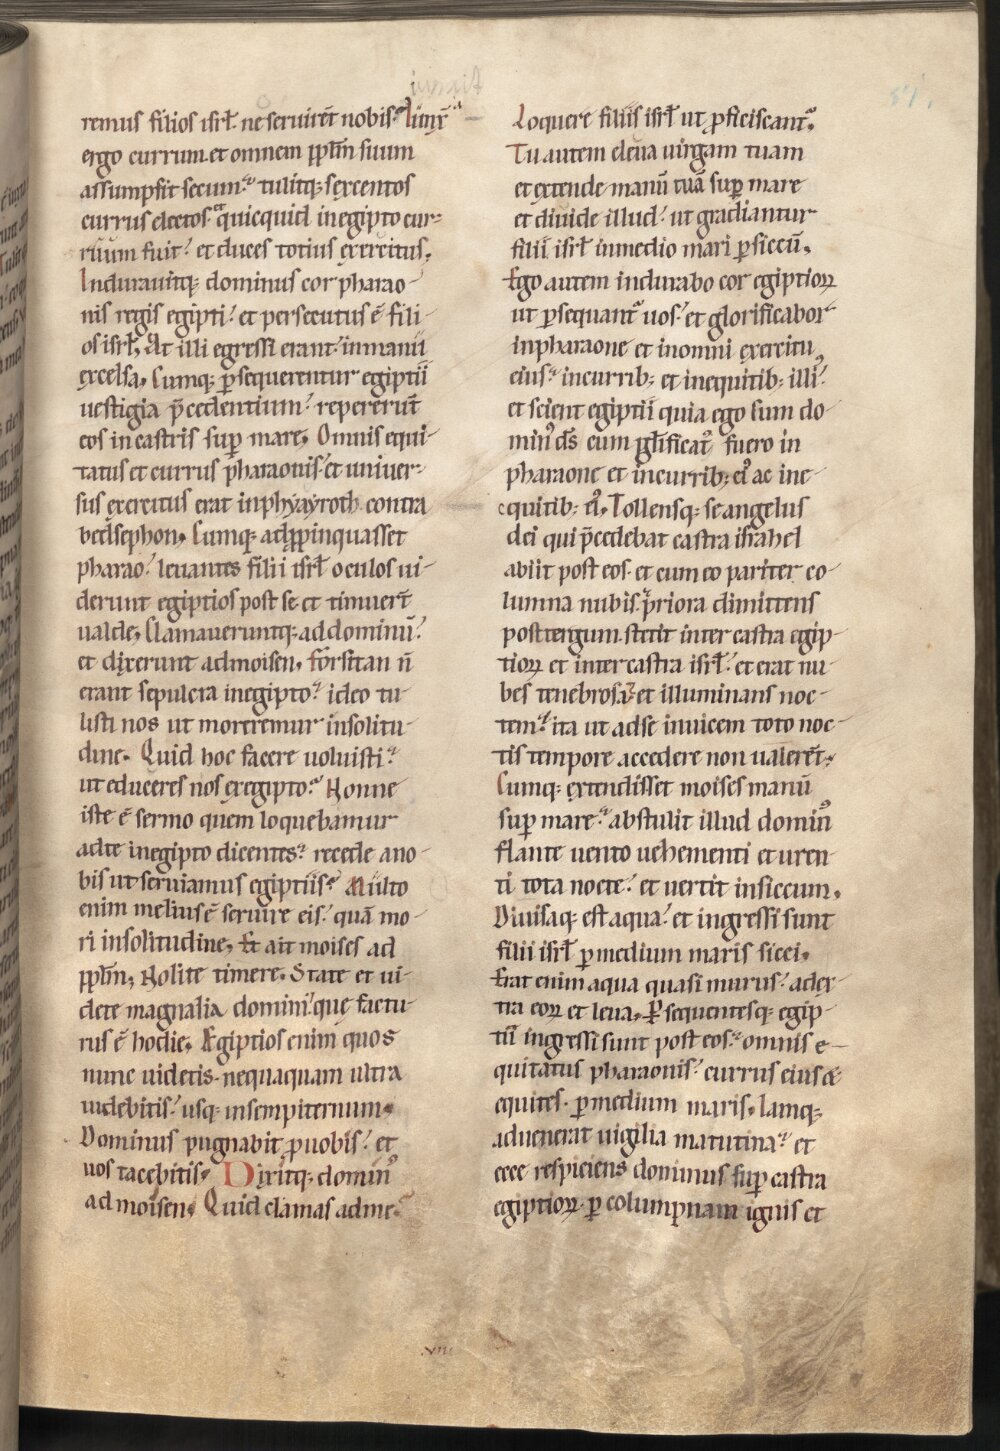 remus filios isrł. ne seruirēt nobis? Iunx̄
ergo currum. et omnem pp̄lm suum
assumpsit secum. tulitq; sexcentos
currus electos. et quicquid in egipto cur-
ruum fuit. et duces totius exercitus.
Indurauitq; dominus cor pharao-
nis regis egipti. et persecutus ē fili-
os isrł. At illi egressi erant. in manu
excelsa. Cumq; ꝑsequerentur egiptii
uestigia p̄cedentium. repererūt
eos in castris suꝑ mare. Omnis equi-
tatus et currus pharaonis. et uniuer-
sus exercitus erat in phyayroth contra
beelsephon. Cumq; adp̱pinquasset
pharao. leuantes filii isrł oculos ui-
derunt egiptios post se et timuerūt
ualde. Clamaueruntq; ad dominū.
et dixerunt ad moisen. Forsitan ñ
erant sepulcra in egipto. ideo tu-
listi nos ut moreremur in solitu-
dine. Quid hoc facere uoluisti?
ut educeres nos ex egipto? Nonne
iste ē sermo quem loquebamur
ad te in egipto dicentes. recede a no-
bis ut seruiamus egiptiis? Multo
enim melius ē seruire eis. quā mo-
ri in solitudine. Et ait moises ad
pp̄lm. Nolite timere. State et ui-
dete magnalia domini. quę factu-
rus ē hodie. Egiptios enim quos
nunc uidetis. nequaquam ultra
uidebitis. usq; in sempiternum.
Dominus pugnabit ꝓ uobis. et
uos tacebitis. Dixitq; dominꝰ
ad moisen. Quid clamas ad me?
.viii.
Loquere filiis isrł ut ꝓficiscant᷑.
Tu autem eleua uirgam tuam
et extende manū tuā suꝑ mare
et diuide illud. ut gradiantur
filii isrł in medio mari ꝑ siccū.
Ego autem indurabo cor egiptioꝝ
ut ꝑsequant᷑ uos. et glorificabor
in pharaone et in omni exercitu
eius. in currib; et in equitib; illiꝰ.
et scient egiptii quia ego sum do-
minꝰ d̄s cum gl̄ificatꝰ fuero in
pharaone et in currib; eiꝰ ac in e-
quitib; eiꝰ. Tollensq; se angelus
dei qui p̄cedebat castra israhel
abiit post eos. et cum eo pariter co-
lumna nubis. p̄riora dimittens
post tergum. stetit inter castra egip-
tioꝝ et inter castra isrł. et erat nu-
bes tenebrosa. et illuminans noc-
tem. ita ut ad se inuicem toto noc-
tis tempore accedere non ualerēt.
Cumq; extendisset moises manū
suꝑ mare. abstulit illud dominꝰ
flante uento uehementi et uren-
ti tota nocte. et uertit in siccum.
Diuisaq; est aqua. et ingressi sunt
filii isrł ꝑ medium maris sicci.
Erat enim aqua quasi murus. a dex-
tra eoꝝ et leua. Ꝑsequentesq; egip-
tii ingressi sunt post eos. omnis e-
quitatus pharaonis. currus eius &
equites. ꝑ medium maris. Iamq;
aduenerat uigilia matutina. et
ecce respiciens dominus suꝑ castra
egiptioꝝ. ꝑ columpnam ignis et